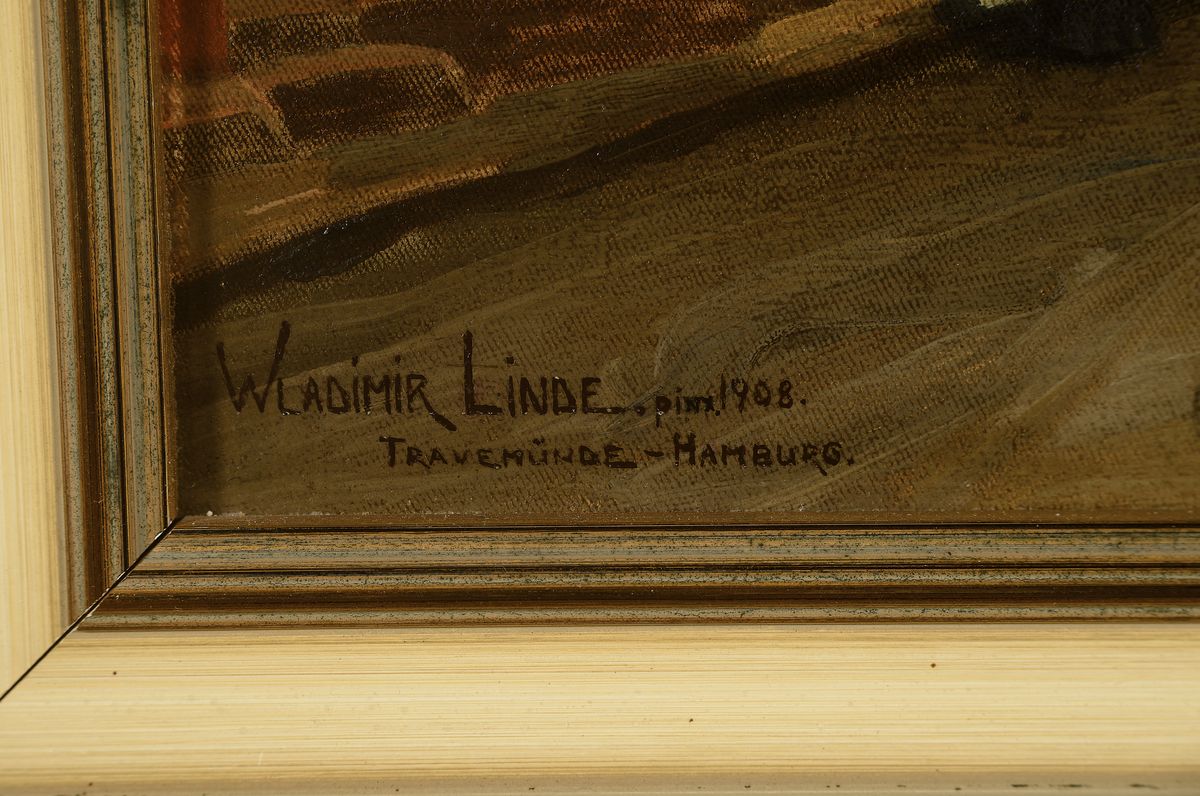 WLADIMIR LINDE. pinx. 1908.
TRAVEMÜNDE - HAMBURG.